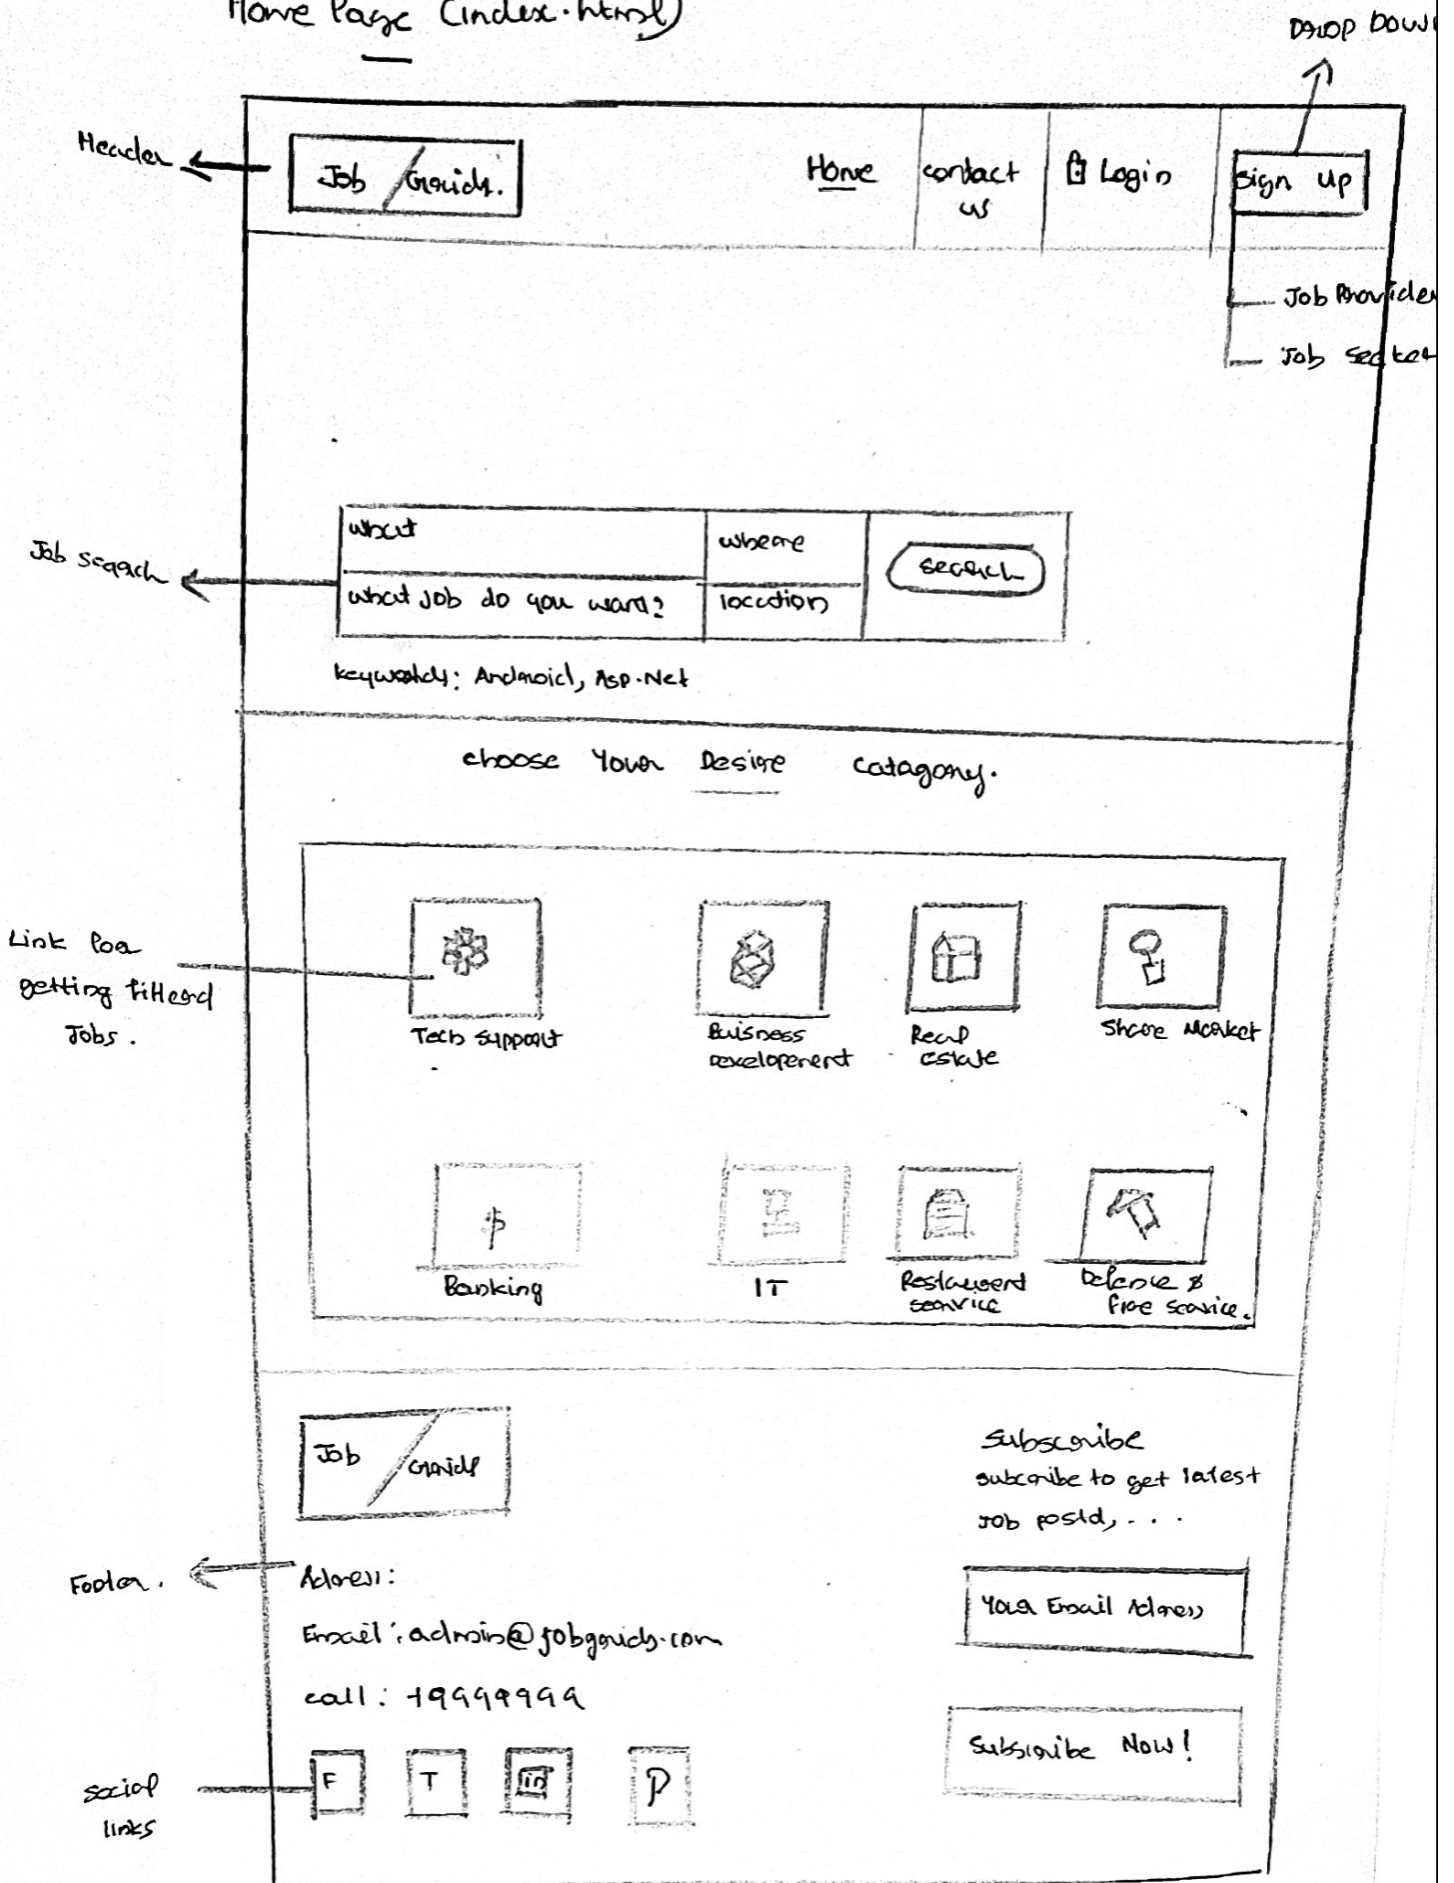 Home Page (index.html)
DROP DOWN
Header
Job / Grids.
Home
contact
us
Login
Sign Up
Job Provider
Job Seeker
Job Search
what
where
search
what job do you want?
location
keywords: Android, Asp.Net
choose Your Desire Catagory.
Link for
getting filterd
Jobs.
Tech support
Buisness
Developement
Real
estate
Share Market
$
Banking
IT
Restaurent
service
Defence &
fire service.
Job / Grids
Subscribe
subcribe to get latest
Job postd, ...
Footer.
Adress:
Your Email Adress
Email: admin@jobgrids.com
call: +9999999
Subscribe Now!
social
links
F
T
P